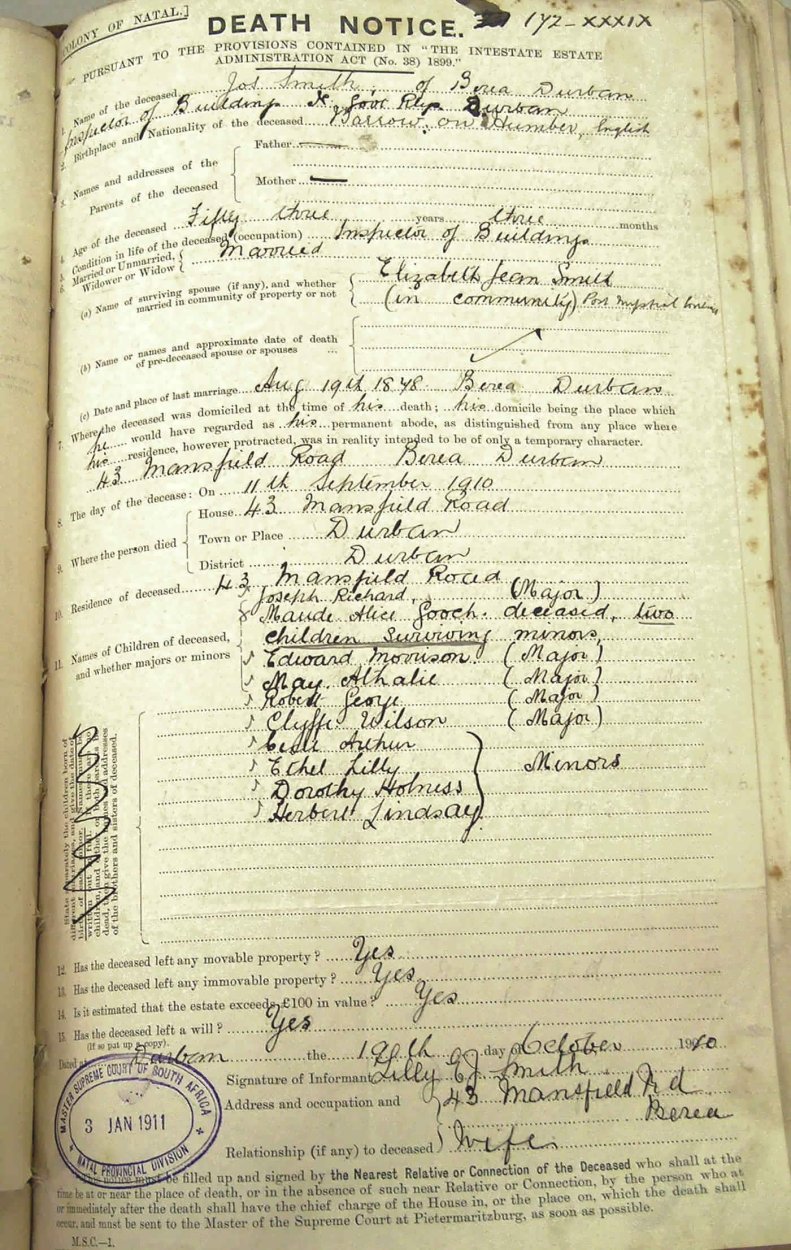 COLONY OF NATAL.]
DEATH NOTICE. 172-XXXIX
PURSUANT TO THE PROVISIONS CONTAINED IN "THE INTESTATE ESTATE
ADMINISTRATION ACT (No. 38) 1899."
1. Name of the deceased Jos Smith, of Berea Durban
Inspector of Buildings Durban
2. Birthplace and Nationality of the deceased Barrow on Humber, English
3. Names and addresses of the
Parents of the deceased
Father —
Mother —
4. Age of the deceased Fifty three years three months
5. Condition in life of the deceased (occupation) Inspector of Buildings
6. Married or Unmarried,
Widower or Widow Married
(a) Name of surviving spouse (if any), and whether
married in community of property or not
Elizabeth Jean Smith
(in community) Post
(b) Name or names and approximate date of death
of pre-deceased spouse or spouses ...
(c) Date and place of last marriage Aug 19th 1878 Berea Durban
7. Where the deceased was domiciled at the time of his death; his domicile being the place which
he would have regarded as his permanent abode, as distinguished from any place where
his residence, however protracted, was in reality intended to be of only a temporary character.
43 Mansfield Road Berea Durban
8. The day of the decease: On 11th September 1910
9. Where the person died
House 43 Mansfield Road
Town or Place Durban
District Durban
10. Residence of deceased 43 Mansfield Road
11. Names of Children of deceased,
and whether majors or minors
Joseph Richard, (Major)
Maude Alice Gooch. deceased, two
children surviving minors,
Edward Morrison (Major)
May Athalie (Major)
Robert George (Major)
Clyffe Wilson (Major)
Cecil Arthur
Ethel Lilly Minors
Dorothy Holness
Herbert Lindsay
State separately the children born of
different marriages, and give the date of
birth of each minor. Names must be
written out in full. If there are no
children, and either or both parents be
dead, then give the names and addresses
of the brothers and sisters of deceased.
12. Has the deceased left any movable property? Yes
13. Has the deceased left any immovable property? Yes
14. Is it estimated that the estate exceeds £100 in value? Yes
15. Has the deceased left a will? Yes
(If so put up a copy).
Dated at Durban the 19th day of October 1910
Signature of Informant Lilly E J Smith
Address and occupation and 43 Mansfield Rd
Berea
Relationship (if any) to deceased Wife
MASTER SUPREME COURT OF SOUTH AFRICA
3 JAN 1911
NATAL PROVINCIAL DIVISION
This notice must be filled up and signed by the Nearest Relative or Connection of the Deceased who shall at the
time be at or near the place of death, or in the absence of such near Relative or Connection, by the person who at
or immediately after the death shall have the chief charge of the House in, or the place on, which the death shall
occur, and must be sent to the Master of the Supreme Court at Pietermaritzburg, as soon as possible.
M.S.C.—1.